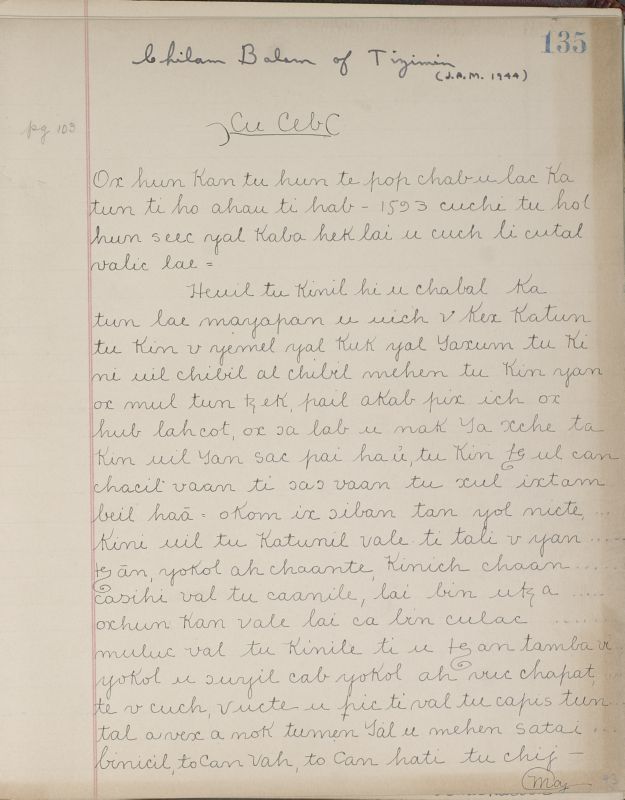 135
Chilam Balam of Tizimin
(J.A.M. 1944)
pg 103
Cu Ceb
Ox hun Kan tu hun te pop chab u lac Ka
tun ti ho ahau ti hab - 1593 cuchi tu hol
hun seec yal Kaba hek lai u cuch li cutal
valic lae =
Heuil tu Kinil hi u chabal Ka
tun lae mayapan u uich v Kex Katun
tu Kin v yemel yal Kuk yal Yaxum tu Ki
ni uil chibil al chibil mehen tu Kin yan
ox mul tun ek, pail akab pix ich ox
hub lahcot, ox ɔa lab u nak Ya xche ta
Kin uil Yan sac pai ha u, tu Kin ul can
chacil vaan ti ɔaɔ vaan tu xul ixtam
beil haā = okom ix ɔiban tan yol nicte, ...
Kini uil tu Katunil vale ti tali v yan .....
ān, yokol ah chaante, Kinich chaān .....
casihi val tu caanile, lai bin u a ....
oxhun Kan vale lai ca bin culac .......
muluc val tu Kinile ti u an tamba v
yokol u ɔuyil cab yokol ah vuc chapat,
te v cuch, vucte u pic ti val tu capis tun
tal a vex a nok tumen Yal u mehen satai ...
binicil, to Can Vah, to Can hati tu chij -
May
93